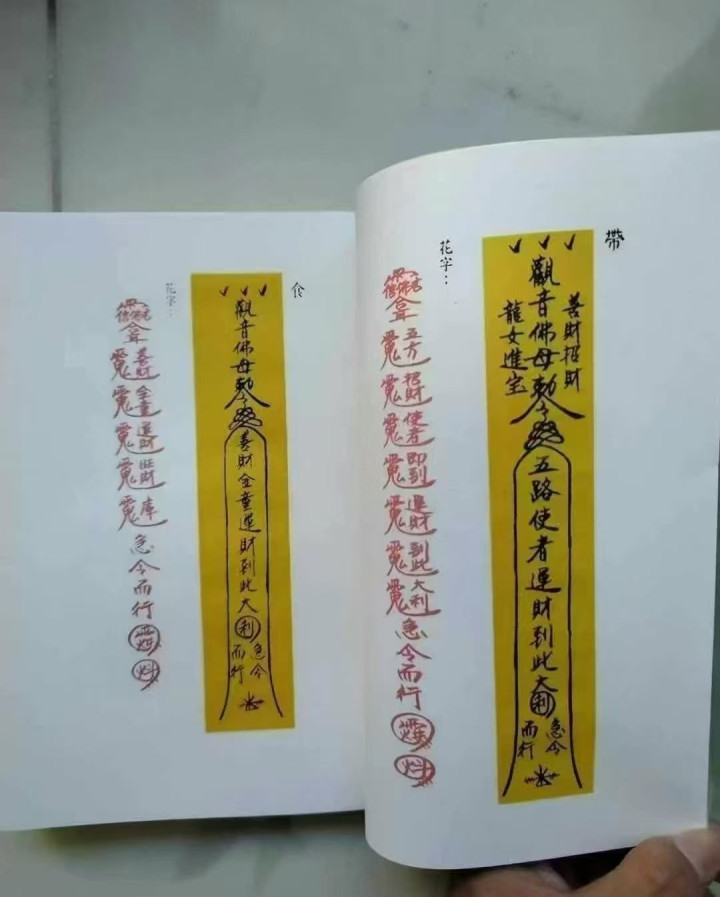 帶
善財招財
觀音佛母勅令
龍女進宝
五路使者運財到此大利
急令
而行
花字：
五方
招財
使者
即到
運財
到此
大利
急令而行
觀音佛母勅令
善財金童運財到此大利
急令
而行
花字：
善財
金童
運財
旺財
庫
急令而行